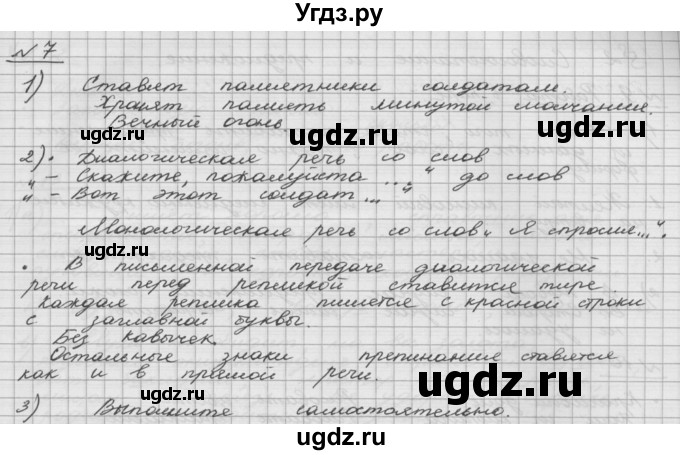 Угдз.ру
№ 7
1) Ставят памятники солдатам.
Хранят память минутой молчания.
Вечный огонь.
ugdz.ru ugdz.ru
2) • Диалогическая речь со слов
„ – Скажите, пожалуйста ...“ до слов
„ – Вот этот солдат...“
ugdz.ru
Монологическая речь со слов „Я спросил...“.
ugdz.ru
• В письменной передаче диалогической
речи перед репликой ставится тире.
Каждая реплика пишется с красной строки
с заглавной буквы.
Без кавычек.
ugdz.ru
Остальные знаки препинания ставятся
как и в прямой речи.
ugdz.ru
3) Выполните самостоятельно.
ugdz.ru